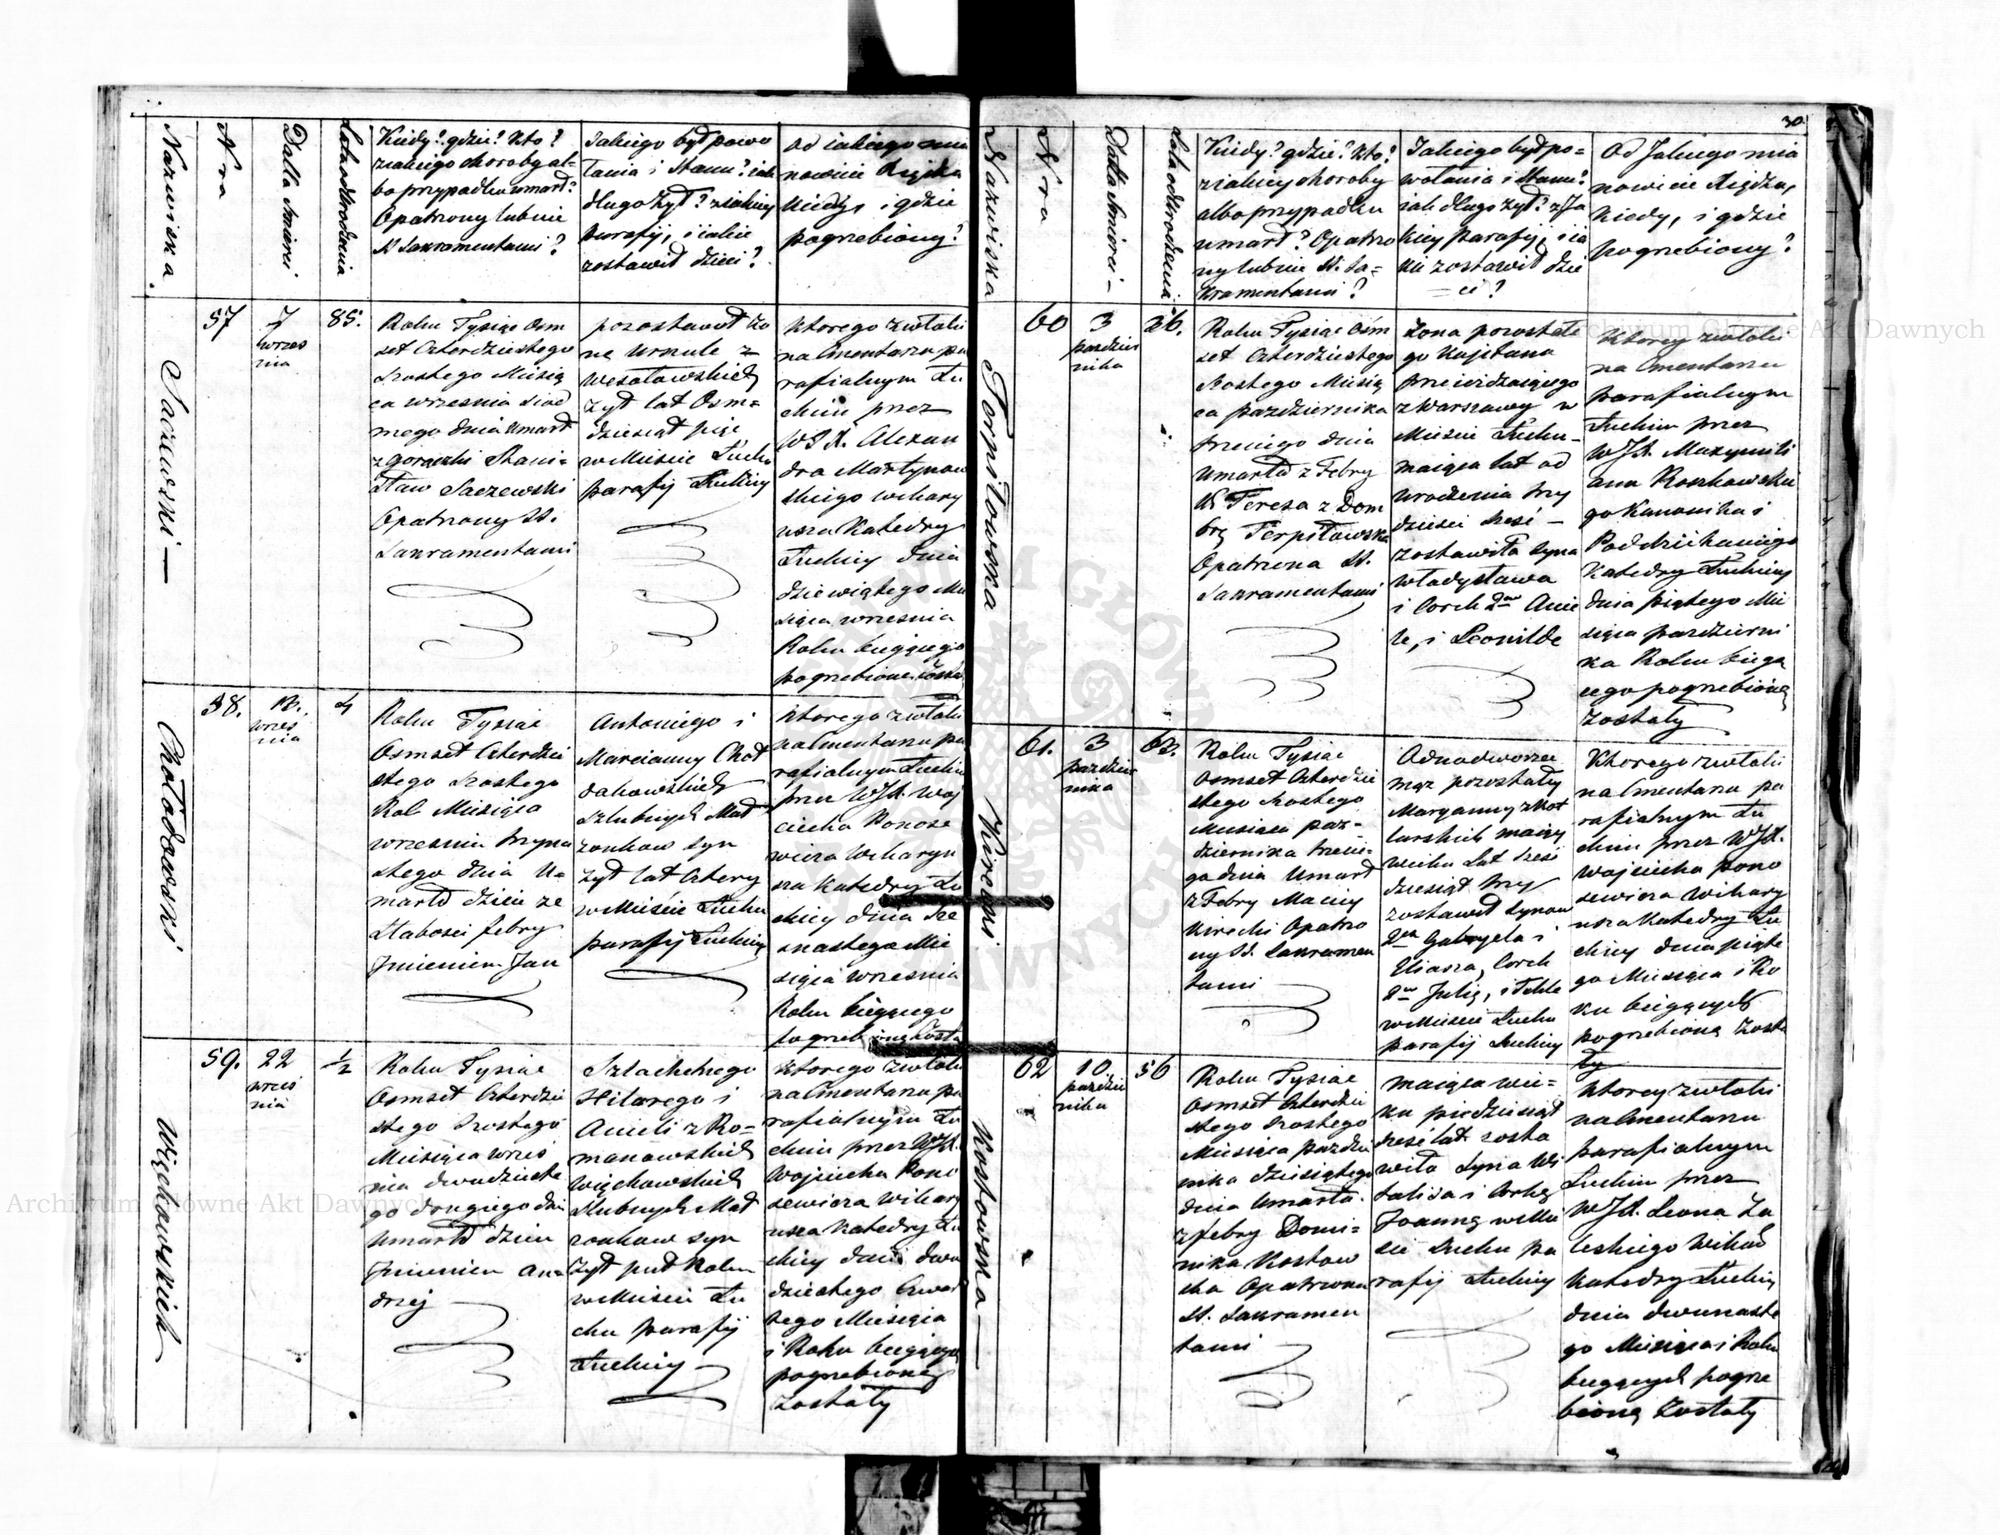 Nazwiska
Nra
Datta Smierci
Lata od Urodzenia
Kiedy? gdzie? Kto?
z iakiego choroby al-
bo przypadku umarł?
Opatrzony lub nie
S. Sakramentami?
Jakiego był powo
łania i Stanu? iak
długo żył? z iakiey
Parafij, i iakie
zostawił dzieci?
od iakiego mia
nowicie Xiędza
Kiedy, i gdzie
pogrzebiony?
Saczewski
57
7
wrzes
nia
85.
Roku Tysiąc Osm
set Czterdziestego
szostego Miesią
ca września siod
mego dnia umarł
z gorączki Stani-
sław Saczewski
Opatrzony SS.
Sakramentami
pozostawił żo
nę Urszulę z
Wesołowskich
żył lat Osm-
dziesiąt pięć
w Mieście Łucku
parafij Łuckiey
Ktorego zwłoki
na Cmentarzu pa
rafialnym Łu
ckim przez
WJX. Alexan
dra Martynow
skiego wikary
usza Katedry
Łuckiey dnia
dziewiątego Mie
siąca września
Roku bieżącego
pogrzebione zostały
Chołodowski
58.
13.
wrześ
nia
4
Roku Tysiąc
Osmset Czterdzie
stego szostego
Rok Miesiąca
września trzyna
stego dnia U-
marło dziecie ze
słabości febry
Jmieniem Jan
Antoniego i
Marcianny Choł
odakowskich
szlubnych Mał
zonkow syn
żył lat cztery
w Mieście Łucku
parafij Łuckiey
Ktorego zwłoki
na Cmentarzu pa
rafialnym Łuckim
przez WJX. Woj
ciecha Konose
wicza wikaryu
sza Katedry Łu
ckiey dnia sze
snastego Mie
siąca września
Roku bieżącego
pogrzebione zosta
Więckowskich
59.
22
wrześ
nia
1/2
Roku Tysiąc
Osmset Czterdzie
stego szostego
Miesiąca wrześ
nia dwudzieste
go drugiego dnia
umarło dziecie
Jmieniem An
drzej
Szlachetnego
Hilarego i
Anieli z Ro-
manowskich
Więckowskich
Szlubnych Mał
zonkow syn
żył puł Roku
w Mieście Łu
cku parafij
Łuckiey
Ktorego zwłoki
na Cmentarzu pa
rafialnym Łu
ckim przez WJX.
Wojciecha Kono
sewicza wikary
usza Katedry Łu
ckiey dnia dwu
dziestego Czwar
tego Miesiąca
i Roku bieżącego
pogrzebione
zostały
30
Nazwiska
Nra
Datta Smierci
Lata od Urodzenia
Kiedy? gdzie? kto?
z iakiey choroby
albo przypadku
umarł? Opatrzo
ny lub nie SS. Sa-
kramentami?
Jakiego był po-
wołania i Stanu?
iak długo żył? z Ja
kiey Parafij, i ia
kie zostawił dzie
ci?
Od Jakiego mia
nowicie Xiędza,
Kiedy, i gdzie
pogrzebiony?
Terpiłowska
60
3
paździer
nika
36.
Roku Tysiąc Ośm
set Czterdziestego
szostego Miesią
ca października
trzeciego dnia
umarła z Febry
Teresa z Dom
Terpiłowska
Opatrzona SS.
Sakramentami
Zona pozostałe
go Kajetana
z Warszawy w
Mieście Łucku
maiąca lat od
urodzenia trzy
dzieści sześć
zostawiła syna
Władysława
i Corek 2wie Anie
le, i Leonilde
Ktorey zwłoki
na Cmentarzu
parafialnym
Łuckim przez
WJX. Maxymili
ana Roszkowskie
go Kanonika i
Poddziekaniego
Katedry Łuckiey
dnia piątego Mie
siąca październi
ka Roku bieżą
cego pogrzebione
zostały
Kirecki
61.
3
paździer
nika
63.
Roku Tysiąc
Osmset Czterdzie
stego szostego
Miesiąca paź-
dziernika trzecie-
go dnia umarł
z Febry Maciey
Kirecki Opatrzo
ny SS. Sakramen
tami
Odnodworzec
mąż pozostały
Maryanny z Kot
larskich maiący
wieku Lat sześć
dziesiąt trzy
zostawił synow
2ch Gabryela i
Eliasza, Corek
2wie Julię, i Teklę
w Mieście Łucku
parafij Łuckiey
Ktorego zwłoki
na Cmentarzu pa
rafialnym Łu
ckim przez WJX.
Wojciecha Kono
sewicza wikary
usza Katedry Łu
ckiey dnia piąte
go Miesiąca i Ro
ku bieżących
pogrzebione zosta
ły
Kostowska
62
10.
paździer
nika
56
Roku Tysiąc
Osmset Czterdzie
stego szostego
Miesiąca paździer
nika dziesiątego
dnia umarła
z febry Domi-
nika Kostow
ska Opatrzona
SS. Sakramen
tami
maiąca wie-
ku piędziesiąt
sześć lat zosta
wiła syna Wi
talisa i Corkę
Joannę w Mie
ście Łucku pa
rafij Łuckiey
Ktorey zwłoki
na Cmentarzu
parafialnym
Łuckim przez
WJX. Leona Za
leskiego Wikar
Katedry Łuckiey
dnia dwunaste
go Miesiąca i Roku
bieżących pogrze
bione zostały
Archiwum Główne Akt Dawnych
Archiwum Główne Akt Dawnych
ARCHIWUM GŁÓWNE AKT DAWNYCH